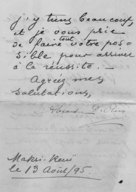 j'y tiens beaucoup,
et je vous prie
de faire tout votre pos-
sible pour arriver
à la réussite.
Agréez mes
salutations,
Makri-Keui
le 13 Août/95